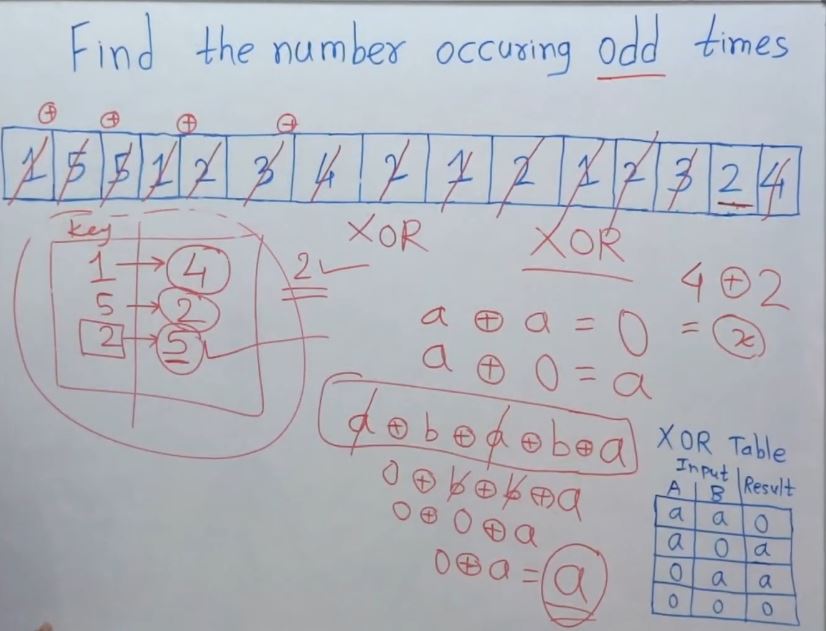 Find the number occuring odd times
⊕ ⊕ ⊕ ⊕
1 5 5 1 2 3 4 2 1 2 1 2 3 2 4
Key
1 → 4
5 → 2
2 → 5
2 ✓
XOR
XOR
4 ⊕ 2
= x
a ⊕ a = 0
a ⊕ 0 = a
a ⊕ b ⊕ a ⊕ b ⊕ a
0 ⊕ b ⊕ b ⊕ a
0 ⊕ 0 ⊕ a
0 ⊕ a = a
XOR Table
Input
A B Result
a a 0
a 0 a
0 a a
0 0 0